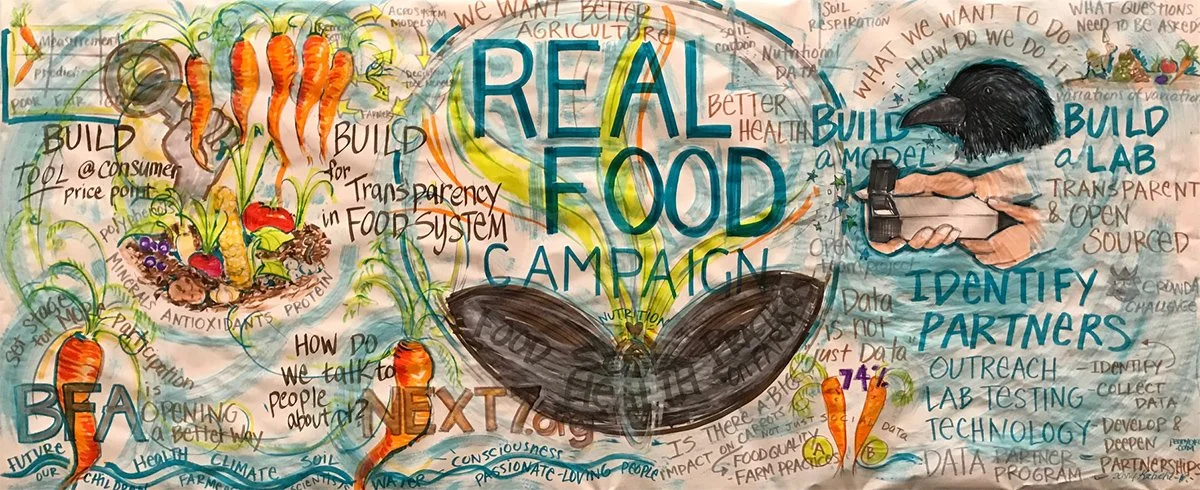 Measurement
POOR FAIR
BUILD
TOOL @ CONSUMER
price point
polyphenols
MINERALS
ANTIOXIDANTS
PROTEIN
BUILD
for
Transparency
in FOOD SYSTEM
ECOSYSTEM
MODELS
FARMERS
WE WANT BETTER
AGRICULTURE
REAL
FOOD
CAMPAIGN
soil
carbon
Nutritional
DATA
BETTER
HEALTH
NUTRITION
FOOD
HEALTH
SOIL
RESPIRATION
WHAT WE WANT TO DO
HOW DO WE DO IT
WHAT QUESTIONS
NEED TO BE ASKED
BUILD
a MODEL
BUILD
a LAB
TRANSPARENT
& OPEN
SOURCED
OPEN
Data
is not
just Data
IDENTIFY
PARTNERS
OUTREACH
LAB TESTING
TECHNOLOGY
DATA PARTNER
PROGRAM
CHALLENGE
IDENTIFY
COLLECT
DATA
DEVELOP &
DEEPEN
PARTNERSHIP
74%
A
B
IS THERE A BIG
IMPACT ON CARROTS
NOT JUST SOCIAL DATA
FOOD QUALITY
FARM PRACTICES
Participation
is
OPENING
a Better Way
BFA
HOW DO
we talk to
people
about it?
NEXT7.org
FUTURE
OUR CHILDREN
HEALTH
FARMERS
CLIMATE
SOIL
SCIENTISTS
WATER
CONSCIOUSNESS
PASSIONATE-LOVING PEOPLE